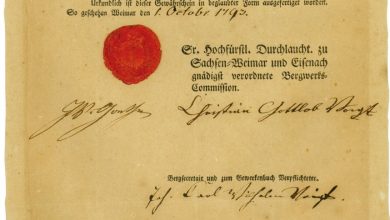 Urkundlich ist dieser Gewährschein in beglaubter Form ausgefertiget worden.
So geschehen Weimar den 1. Octobr 1793.
Sr. Hochfürstl. Durchlaucht. zu
Sachsen-Weimar und Eisenach
gnädigst verordnete Bergwerks-
Commission.
JWGoethe Christian Gottlob Voigt
Bergsecretair und zum Gewerkenbuch Verpflichteter.
Joh. Carl Wilhelm Voigt